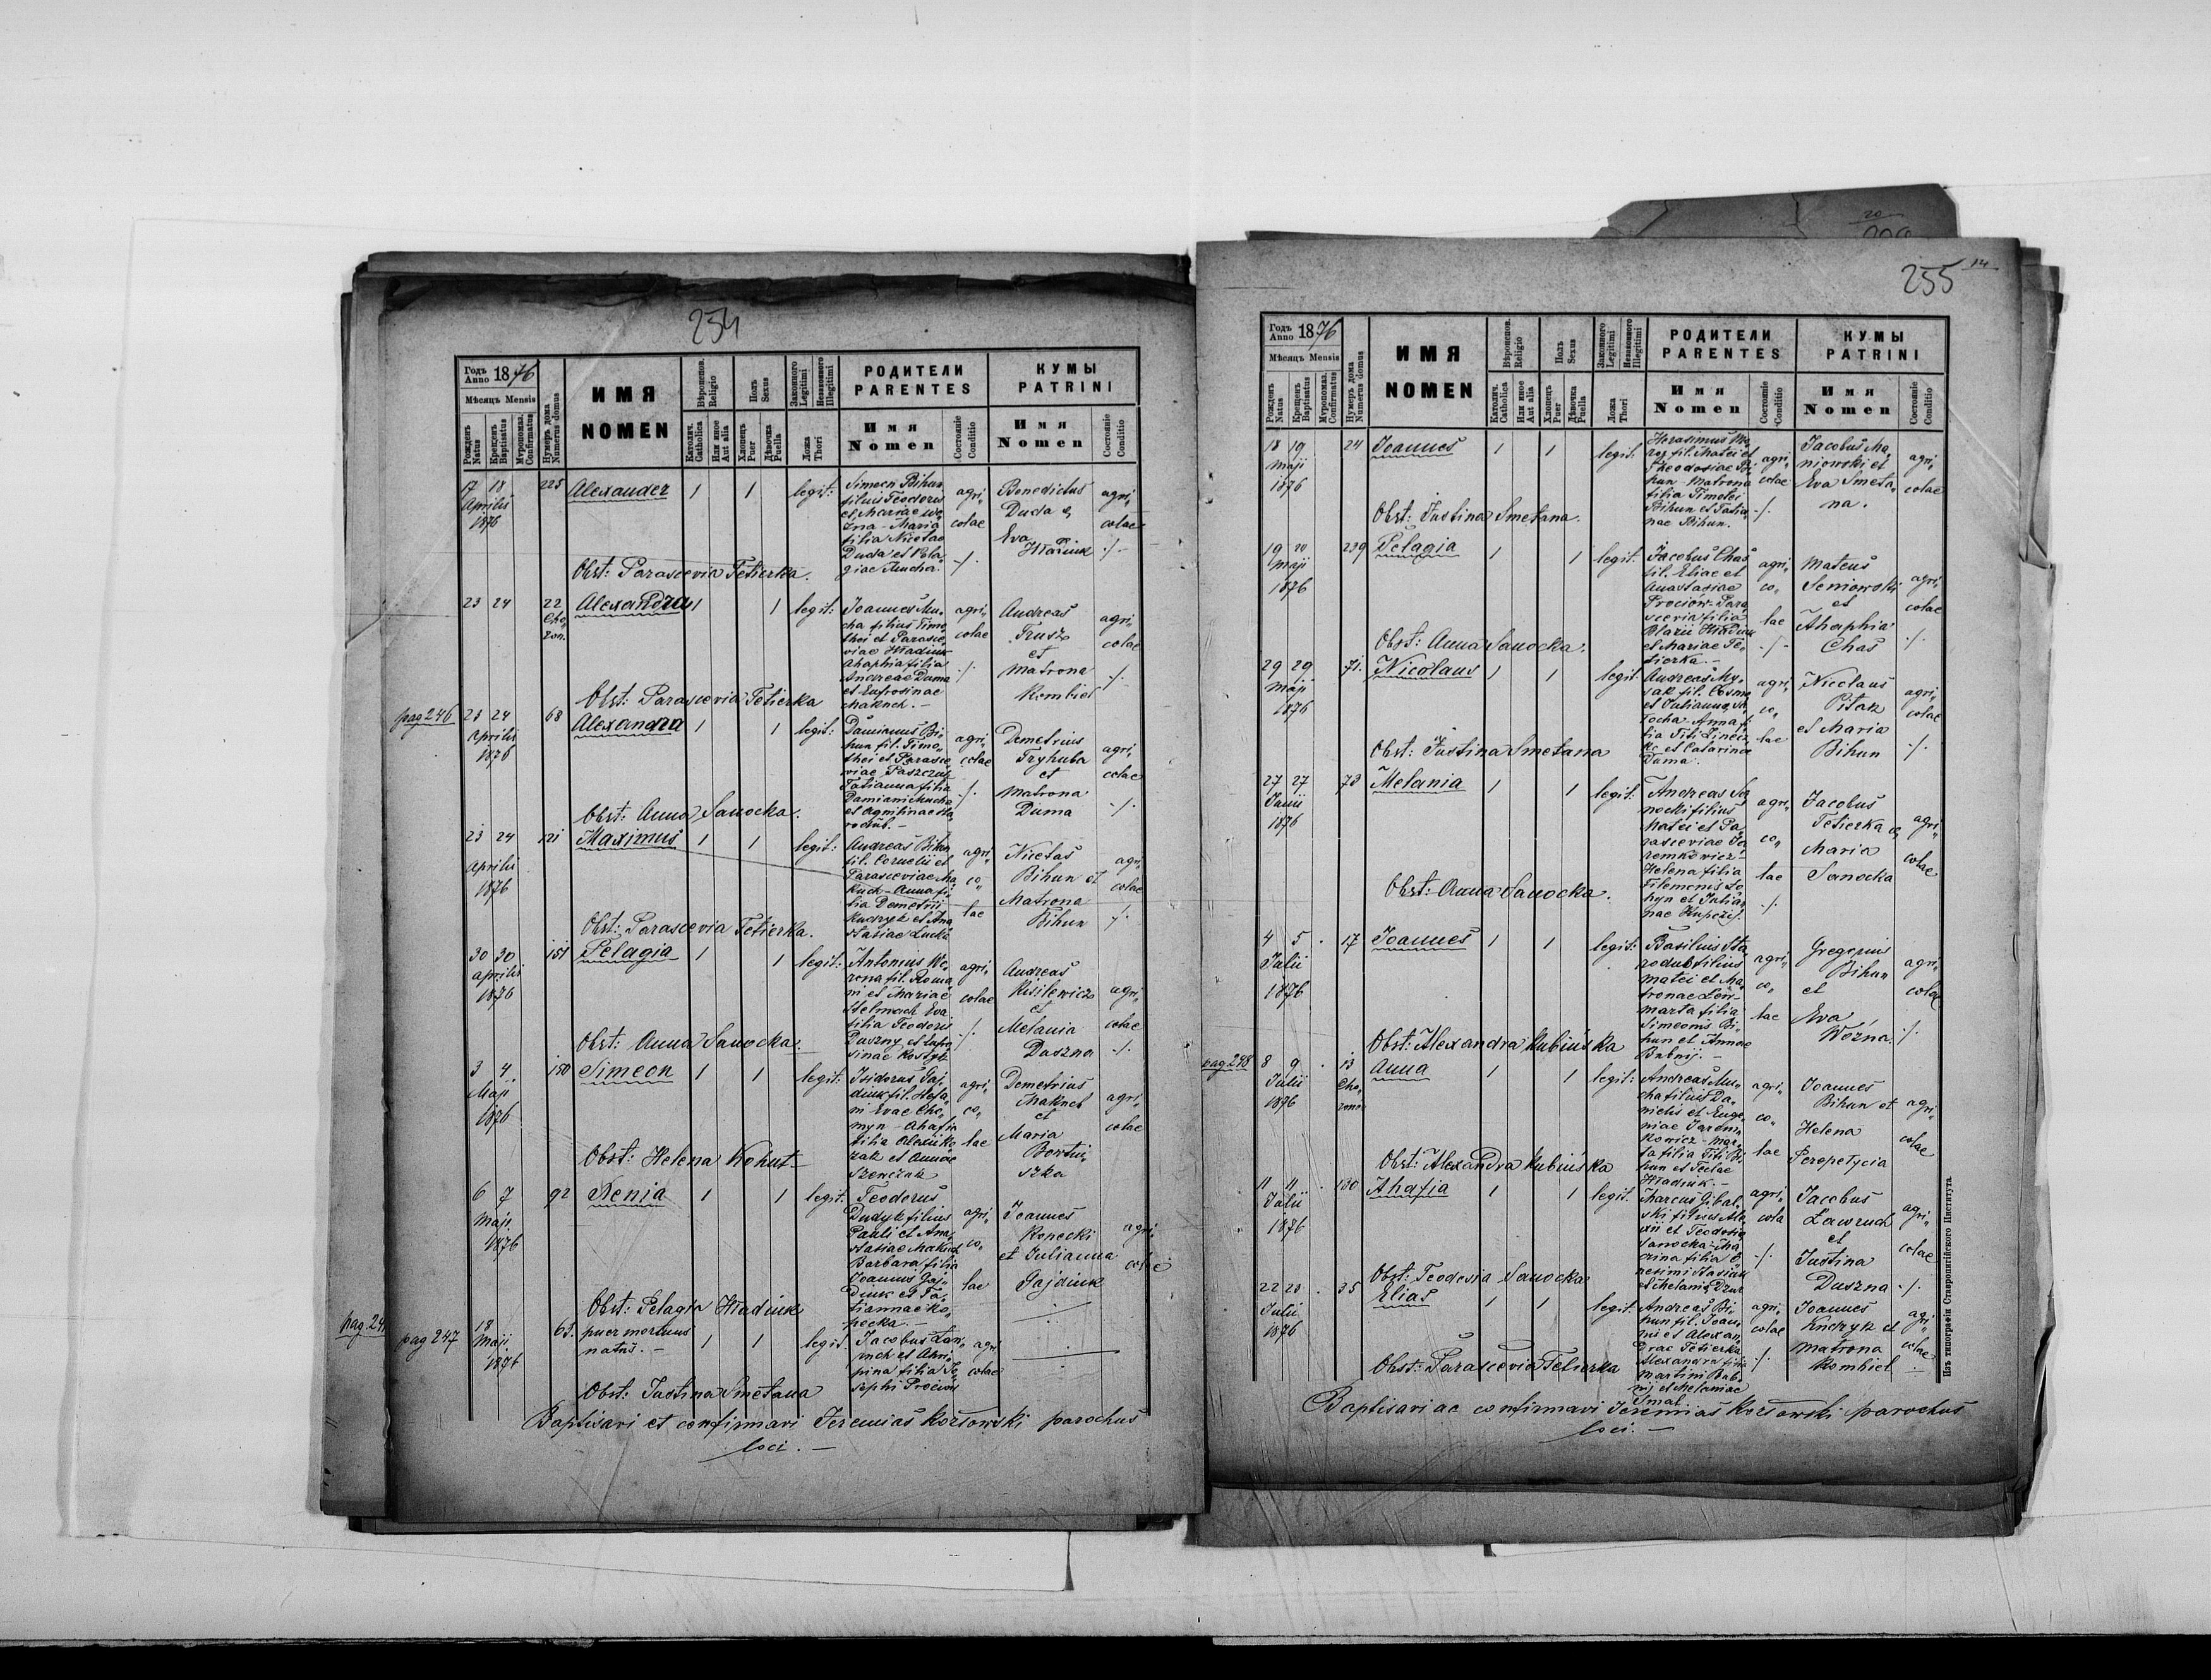 254
Годъ Anno 1876
Мѣсяцъ Mensis
Рожденъ Natus
Крещенъ Baptisatus
Мѵропомаз. Confirmatus
Нумеръ дома Numerus domus
ИМЯ
NOMEN
Вѣроиспов. Religio
Католич. Catholica
Или иное Aut alia
Полъ Sexus
Хлопецъ Puer
Дѣвочка Puella
Законного Legitimi
Незаконного Illegitimi
Ложа Thori
РОДИТЕЛИ
PARENTES
Имя
Nomen
Состояніе Conditio
КУМЫ
PATRINI
Имя
Nomen
Состояніе Conditio
17 18 Aprilis 1876
225
Alexander 1 1 legit:
Simeon Bihun
filius Teodori
et Mariae Wo-
zna - Maria
filia Nicetae
Duda et Pela-
giae Mucha.
agri-
colae
Benedictus
Duda &
Eva
Hładiuk
agri-
colae
Obst: Parascevia Tetierka.
23 24
22
Alexandra 1 1 legit:
Joannes Mu-
cha filius Timo-
thei et Parasce-
viae Hładiuk
Ahaphia filia
Andreae Duma
et Eufrosinae
Makuch. -
agri-
colae
Andreas
Trusz
et
Matrona
Kombiel
agri-
colae
Obst: Parascevia Tetierka
pag 246
23 24 Aprilis 1876
68
Alexandra 1 1 legit:
Damianus Bi-
hun fil. Timo-
thei et Parasce-
viae Paszczuk
Tatianna filia
Damiani Mucha
et Agripinae Sta-
rodub. -
agri-
colae
Demetrius
Tryhuba
et
Matrona
Duma
agri-
colae
Obst: Anna Sanocka.
23 24 Aprilis 1876
121
Maximus 1 1 legit:
Andreas Bihun
fil. Cornelii et
Parasceviae Ma-
kuch - Anna fi-
lia Demetrii
Kudryk et Ana-
stasiae Lucka
agri-
co-
lae
Nicetas
Bihun et
Matrona
Bihun
agri-
colae
Obst: Parascevia Tetierka.
30 30 Aprilis 1876
151
Pelagia 1 1 legit:
Antonius We-
rona fil. Roma-
ni et Mariae
Stelmach Eva
filia Teodori
Duszny et Eufro-
sinae Kostyk
agri-
colae
Andreas
Kisilewicz
et
Melania
Duszna
agri-
colae
Obst: Anna Sanocka.
3 4 Maji 1876
180
Simeon 1 1 legit:
Isidorus Gaj-
diuk fil. Stefa-
ni Evae Cho-
myn - Ahafia
filia Alexii Ko-
zak et Annae
Szewczuk
agri-
co-
lae
Demetrius
Makuch
et
Maria
agri-
colae
Obst: Helena Kohut
6 7 Maji. 1876
92
Xenia 1 1 legit.
Teodorus
Dudyk filius
Pauli et Ana-
stasiae Makuch
Barbara filia
Joannis Gaj-
diuk et Ta-
tiannae Ko-
pecka. -
agri-
co-
lae
Joannes
Kopecki
et Julianna
Gajdiuk
agri-
colae
Obst: Pelagia Hładiuk
pag 247
18 Maji 1876
65.
puer mortuus
natus. - 1 1 legit.
Jacobus Law-
ruch et Agri-
pina filia Jo-
sephi Prociów
agri-
colae
Obst: Justina Smetana
Baptisavi et confirmavi Jeremias Kozłowski parochus
loci. -
255
14
Годъ Anno 1876
Мѣсяцъ Mensis
Рожденъ Natus
Крещенъ Baptisatus
Мѵропомаз. Confirmatus
Нумеръ дома Numerus domus
ИМЯ
NOMEN
Вѣроиспов. Religio
Католич. Catholica
Или иное Aut alia
Полъ Sexus
Хлопецъ Puer
Дѣвочка Puella
Законного Legitimi
Незаконного Illegitimi
Ложа Thori
РОДИТЕЛИ
PARENTES
Имя
Nomen
Состояніе Conditio
КУМЫ
PATRINI
Имя
Nomen
Состояніе Conditio
18 19 Maji 1876
24
Joannes 1 1 legit.
fil. Matei et
Theodosiae Bi-
hun - Matrona
filia Timotei
Bihun et Tatia-
nae Bihun.
agri-
colae
Jacobus Ma-
niowski et
Eva Smeta-
na.
agri-
colae
Obst: Justina Smetana.
19 20 Maji 1876
239
Pelagia 1 1 legit:
Jacobus Chas
fil. Eliae et
Anastasiae
Prociów - Para-
scevia filia
Blazii Hładiuk
et Mariae Te-
tierka. -
agri-
co-
lae
Mateus
Seniowski
et
Ahaphia
Chas
agri-
colae
Obst: Anna Sanocka.
29 29 Maji 1876
71.
Nicolaus 1 1 legit.
fil. Cosmae
et Julianna
Anna fi-
lia Titi
et Catarinae
Duma.
agri-
co-
lae
Nicolaus
Pitak
et Maria
Bihun
agri-
colae
Obst: Justina Smetana
27 27 Junii 1876
78
Melania 1 1 legit:
Andreas Sa-
nocki filius
Matei et Pa-
rasceviae Ja-
remkowicz -
Helena filia
Filemonis
et Julian-
nae
agri-
co-
lae
Jacobus
Tetierka &
Maria
Sanocka
agri-
colae
Obst: Anna Sanocka.
4 5 Julii 1876
17
Joannes 1 1 legit:
Basilius Sta-
rodub filius
Matei et Ma-
tronae
Marta filia
Simeonis Bi-
hun et Annae
Bubnij. -
agri-
co-
lae
Gregorius
Bihun
et
Eva
Woźna
agri-
colae
Obst: Alexandra Kubiuska
pag 248
8 9 Julii 1876
13
Anna 1 1 legit:
Andreas Mu-
cha filius Da-
nielis et Euge-
niae Jarem-
kowicz - Mar-
ta filia Titi Bi-
hun et Teclae
Hładiuk. -
agri-
co-
lae
Joannes
Bihun et
Helena
Perepetycia
agri-
colae
Obst: Alexandra Kubiuska
11 11 Julii 1876
130
Ahafia 1 1 legit.
Marcus Gibal-
ski filius Ale-
xii et Teodosia
Sanocka - Ma-
crina filia O-
nesimi Stasiuk
et Melania
agri-
cola
Jacobus
Ławruch
et
Justina
Duszna
agri-
colae
Obst: Teodosia Sanocka
22 23 Julii 1876
35
Elias 1 1 legit.
Andreas Bi-
hun fil. Joan-
nis et Alexan-
drae Tetierka
Alexandra filia
Martini Bub-
nij et Melaniae
agri-
colae
Joannes
Kudryk et
Matrona
Kombiel
agri-
colae
Obst: Parascevia Tetierka
Baptisavi ac confirmavi Jeremias Kozłowski parochus
loci. -
Изъ типографіи Ставропигійского Института